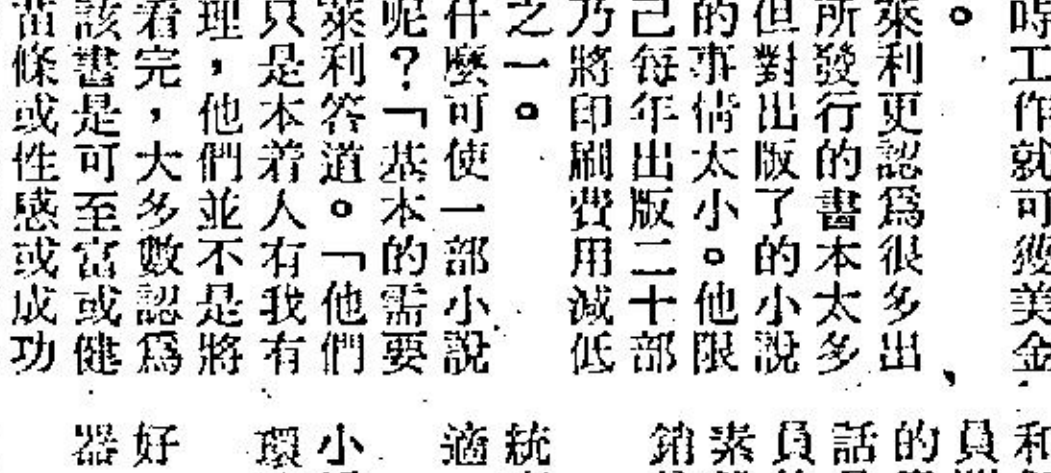 時工作就可獲美金
。
來利更認爲很多出、
所發行的書本太多
但對出版了的小說
的事情太小。他限
己每年出版二十部
乃將印刷費用減低
之一。
什麼可使一部小說
呢？「基本的需要
萊利答道。「他們
只是本着人有我有
理，他們並不是將
看完，大多數認爲
該書是可至富或健
苗條或性感或成功
和
員
的
話
員
素
銷
統
適
小
環
好
器